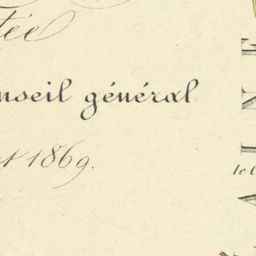 tée
nseil général
t 1869.